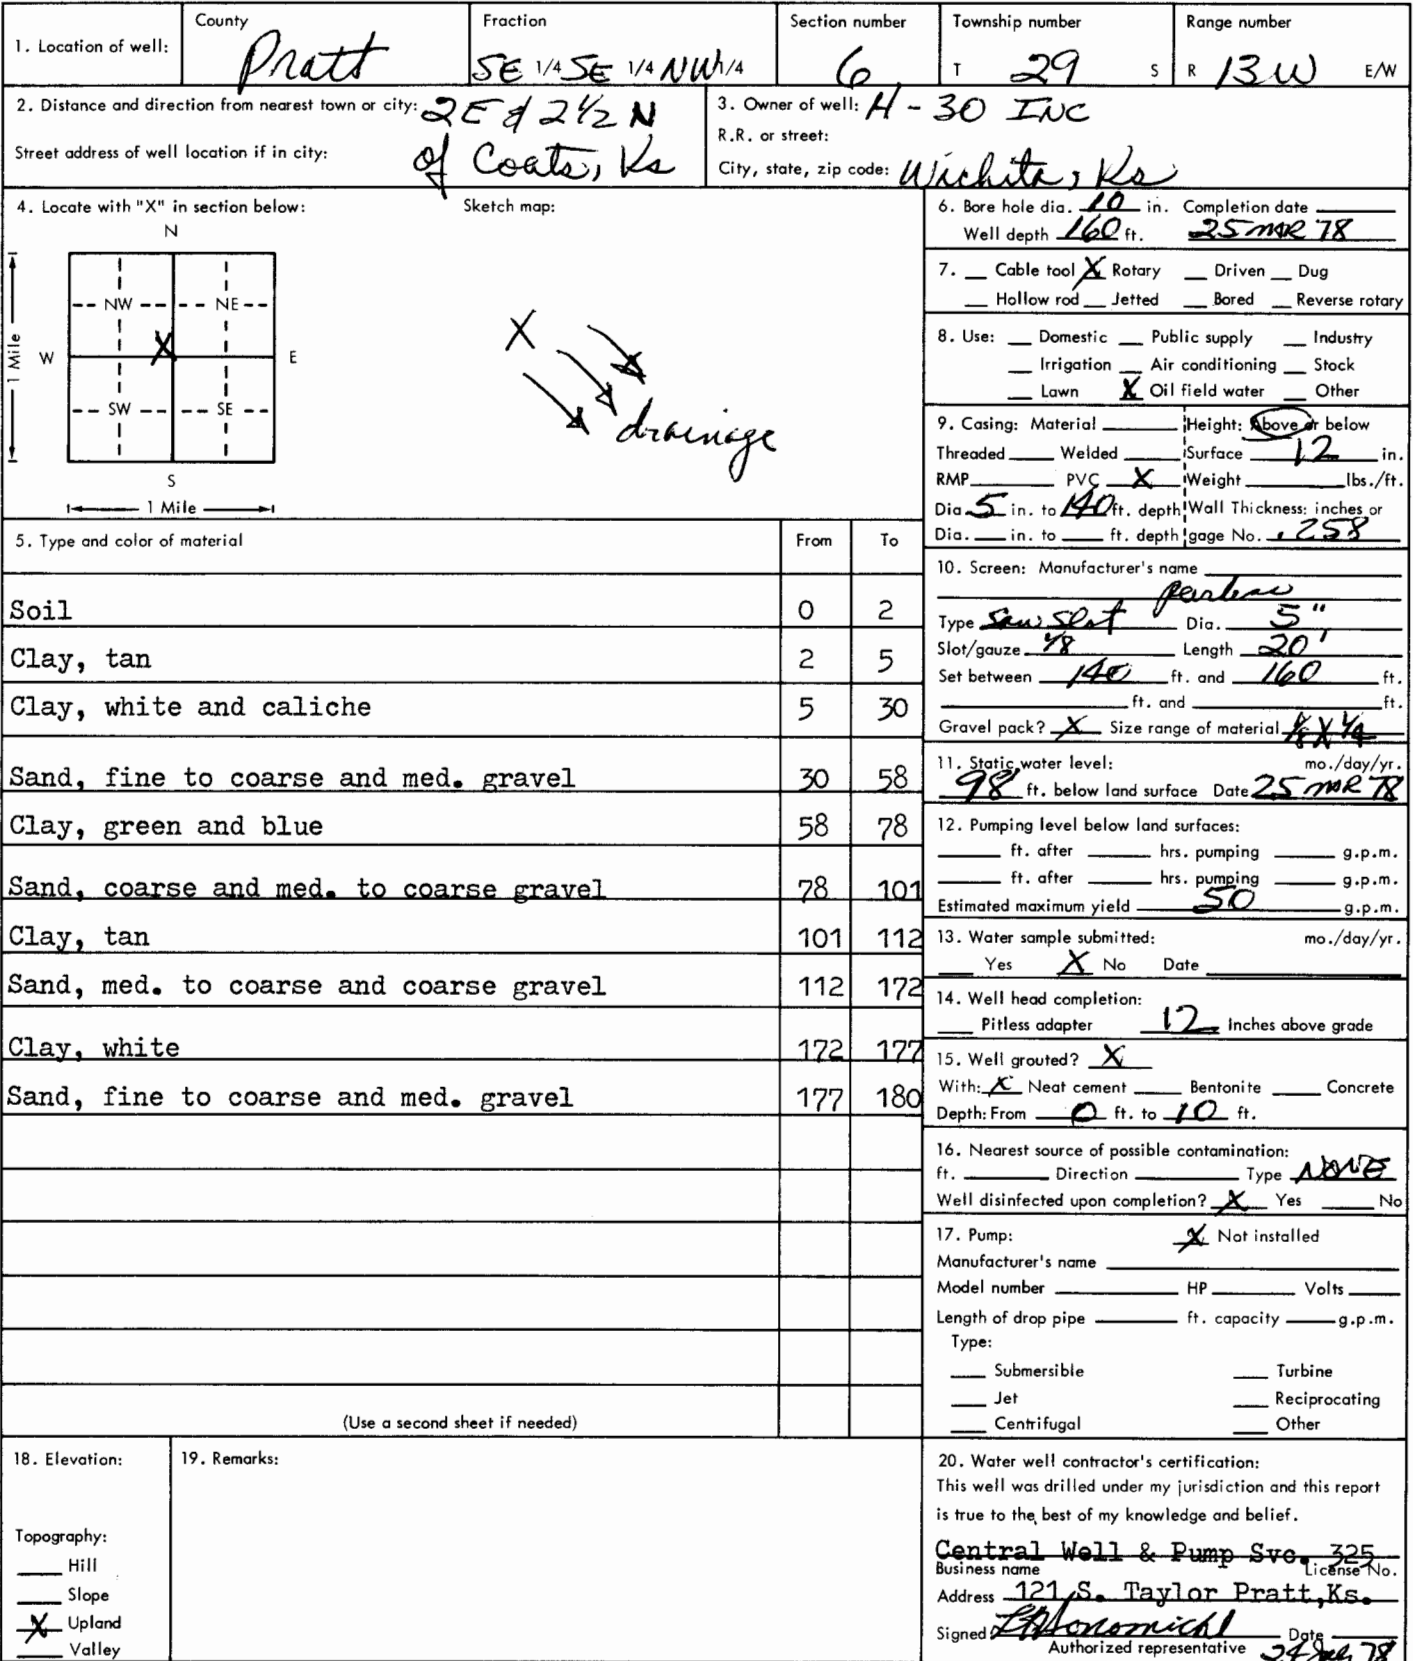 1. Location of well: County Pratt Fraction SE 1/4 SE 1/4 NW 1/4 Section number 6 Township number T 29 S Range number R 13 W E/W
2. Distance and direction from nearest town or city: 2E & 2½ N
Street address of well location if in city: of Coats, Ks
3. Owner of well: H-30 INC
R.R. or street:
City, state, zip code: Wichita, Ks
4. Locate with "X" in section below: Sketch map:
N
NW NE
X
W E
1 Mile
SW SE
S
1 Mile
X
drainage
5. Type and color of material From To
Soil 0 2
Clay, tan 2 5
Clay, white and caliche 5 30
Sand, fine to coarse and med. gravel 30 58
Clay, green and blue 58 78
Sand, coarse and med. to coarse gravel 78 101
Clay, tan 101 112
Sand, med. to coarse and coarse gravel 112 172
Clay, white 172 177
Sand, fine to coarse and med. gravel 177 180
(Use a second sheet if needed)
6. Bore hole dia. 10 in. Completion date
Well depth 160 ft. 25 MAR 78
7. __ Cable tool X Rotary __ Driven __ Dug
__ Hollow rod __ Jetted __ Bored __ Reverse rotary
8. Use: __ Domestic __ Public supply __ Industry
__ Irrigation __ Air conditioning __ Stock
__ Lawn X Oil field water __ Other
9. Casing: Material ____ Height: Above or below
Threaded ____ Welded ____ Surface 12 in.
RMP ____ PVC X Weight ____ lbs./ft.
Dia. 5 in. to 140 ft. depth Wall Thickness: inches or
Dia. __ in. to __ ft. depth gage No. .258
10. Screen: Manufacturer's name
Type Saw Slot Dia. 5"
Slot/gauze 1/8 Length 20'
Set between 140 ft. and 160 ft.
____ ft. and ____ ft.
Gravel pack? X Size range of material 1/8 X 1/4
11. Static water level: mo./day/yr.
98 ft. below land surface Date 25 MAR 78
12. Pumping level below land surfaces:
____ ft. after ____ hrs. pumping ____ g.p.m.
____ ft. after ____ hrs. pumping ____ g.p.m.
Estimated maximum yield 50 g.p.m.
13. Water sample submitted: mo./day/yr.
__ Yes X No Date ____
14. Well head completion:
__ Pitless adapter 12 Inches above grade
15. Well grouted? X
With: X Neat cement __ Bentonite __ Concrete
Depth: From 0 ft. to 10 ft.
16. Nearest source of possible contamination:
ft. ____ Direction ____ Type NONE
Well disinfected upon completion? X Yes __ No
17. Pump: X Not installed
Manufacturer's name ____
Model number ____ HP ____ Volts ____
Length of drop pipe ____ ft. capacity ____ g.p.m.
Type:
__ Submersible __ Turbine
__ Jet __ Reciprocating
__ Centrifugal __ Other
18. Elevation:
Topography:
__ Hill
__ Slope
X Upland
__ Valley
19. Remarks:
20. Water well contractor's certification:
This well was drilled under my jurisdiction and this report
is true to the best of my knowledge and belief.
Central Well & Pump Svc. 325
Business name License No.
Address 121 S. Taylor Pratt,Ks.
Signed Date
Authorized representative 78